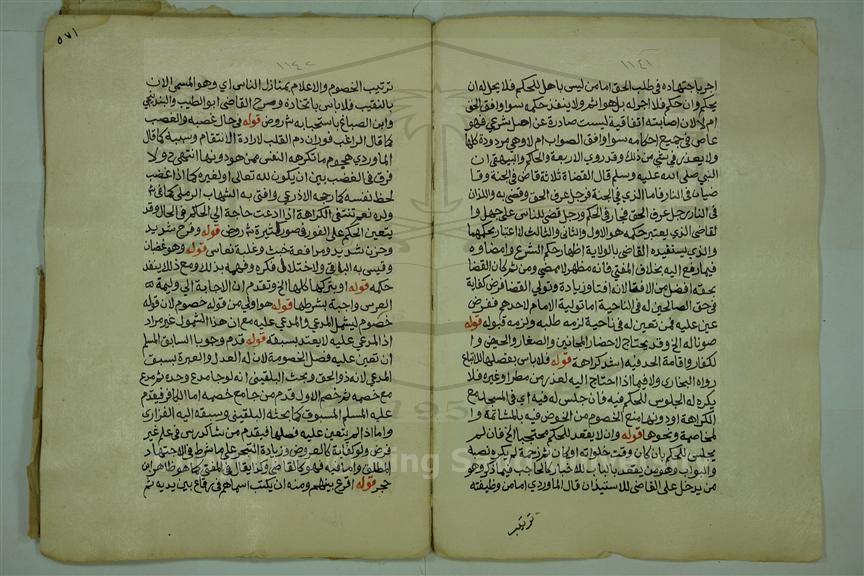 ١١٤١
اجر باجتهاده في طلب الحق امامن ليس باهل للحكم فلا يحل له ان
يحكم وان حكم فلا اجر له بل هو اثم ولا ينفذ حكمه سوا وافق الحق
ام لا لان اصابته اتفاقية ليست صادرة عن اصل شرعي فهو
عاص في جميع احكامه سوا وافق الصواب ام لا وهي مردودة كلها
ولا يعذر في شي من ذلك وقد روى الاربعة والحاكم والبيهقي ان
النبي صلى الله عليه وسلم قال القضاة ثلاثة قاض في الجنة وقا
ضيان في النار فاما الذي في الجنة فرجل عرف الحق وقضى به واللذان
في النار رجل عرف الحق فجار في الحكم ورجل قضى للناس على جهل وا
لقاضي الذي يعتبر حكمه هو الاول والثاني والثالث لا اعتبار بحكمهما
والذي يستفيده القاضي بالولاية اظهار حكم الشرع وامضاوه
فيما رفع اليه بخلاف المفتي فانه مظهر لا ممضي ومن ثم كان القضا
بحقه افضل من الافتا لانه افتا وزيادة وتولي القضا فرض كفاية
في حق الصالحين له في الناحية اما تولية الامام لاحدهم ففرض
عين عليه فمن تعين له في ناحية لزمه طلبه ولزمه قبوله قوله
صونا له الخ وقد يحتاج لاحضار المجانين والصغار والحيض وا
لكفار واقامة الحد فيه اشد كراهة قوله فلا باس بفصلها للاتباع
رواه البخاري ولا فيما اذا احتاج اليه لعذر من مطر او غيره فلا
يكره له الجلوس للحكم فيه فان جلس له فيه اي في المسجد مع
الكراهة او دونها منع الخصوم من الخوض فيه بالمشاتمة وا
لمخاصمة ونحوها قوله وان لا يقعد للحكم محتجبا الخ فان لم
يجلس للحكم بان كان وقت خلواته او كان ثم زحمة لم يكره نصبه
والبواب وهو من يقعد بالباب للاخبار كالحاجب فيما ذكر وهو
من يدخل على القاضي للاستيذان قال الماوردي امامن وظيفته
ترتيب
٥٧١
١١٤٢
ترتيب الخصوم والاعلام بمنازل الناس اي وهو المسمى الان
بالنقيب فلا باس باتخاذه وصرح القاضي ابو الطيب والبندنيجي
وابن الصباغ باستحبابه ش روض قوله في حال غضبه والغضب
كما قال الراغب فوران دم القلب لارادة الانتقام وسببه كما قال
الماوردي هجوم ما تكرهه النفس ممن هو دونها انتهى د ولا
فرق في الغضب بين ان يكون لله تعالى ولغيره كما اذا غضب
لحظ نفسه كما رجحه الاذرعي وافتى به الشهاب الرملي كما في ش
ولده نعم تنتفي الكراهة اذا دعت حاجة الى الحكم في الحال وقد
يتعين الحكم على الفور في صور كثيرة ش روض قوله وفرح شديد
وحزن شديد ومدافعة خبث وغلبة نعاس قوله وهو غضبان
وقيس به الباقي ولاختلال فكره وفهمه بذلك ومع ذلك ينفذ
حكمه قوله او يتركها كلها الخ وتقدم ان الاجابة الى وليمة
العرس واجبة بشرطها قوله هو اولى من قوله خصوم لان قوله
خصوم ليشمل المدعي والمدعى عليه مع ان هذا الشمول غير مراد
اذ المدعى عليه لا يعتد بسبقه قوله قدم وجوبا السابق المسلم
ان تعين عليه فصل الخصومة لان له العدل والعبرة بسبق
المدعي لانه ذو الحق وبحث البلقيني انه لو جا مدع وحده ثم مدع
مع خصمه ثم خصم الاول قدم من جا مع خصمه اما الكافر فيقدم
عليه المسلم المسبوق كما بحثه البلقيني وسبقه اليه الفزاري
واما اذا لم يتعين عليه فصلها فيقدم من شا كدرس في علم غير
فرض ولو كفاية كالعروض وزيادة التبحر على ما شرط في الاجتهاد
المطلق واما فيه فهو كالقاضي وكذا يقال في المفتي كما هو ظاهر ان
حجر قوله اقرع بينهم ومنه ان يكتب اسماهم في رقاع بين يديه ثم